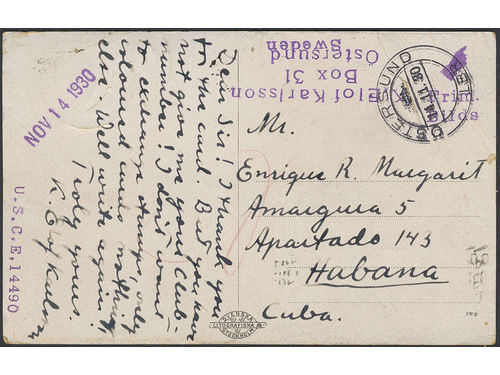 Dear Sir! I thank you
for the card. But you have
not give me your Club-
number! I don't want
to exchange stamps, only
coloured cards nothing
else. Well write again!
Truly yours
K. E. of Karlsson
NOV 14 1930
U.S.C.E. 14490
Elof Karlsson
Box 31
Östersund
Sweden
ÖSTERSUND
Mr.
Enrique R. Margarit
Amargura 5
Apartado 143
Habana
Cuba.
SVENSKA
LITOGRAFISKA AB
STOCKHOLM